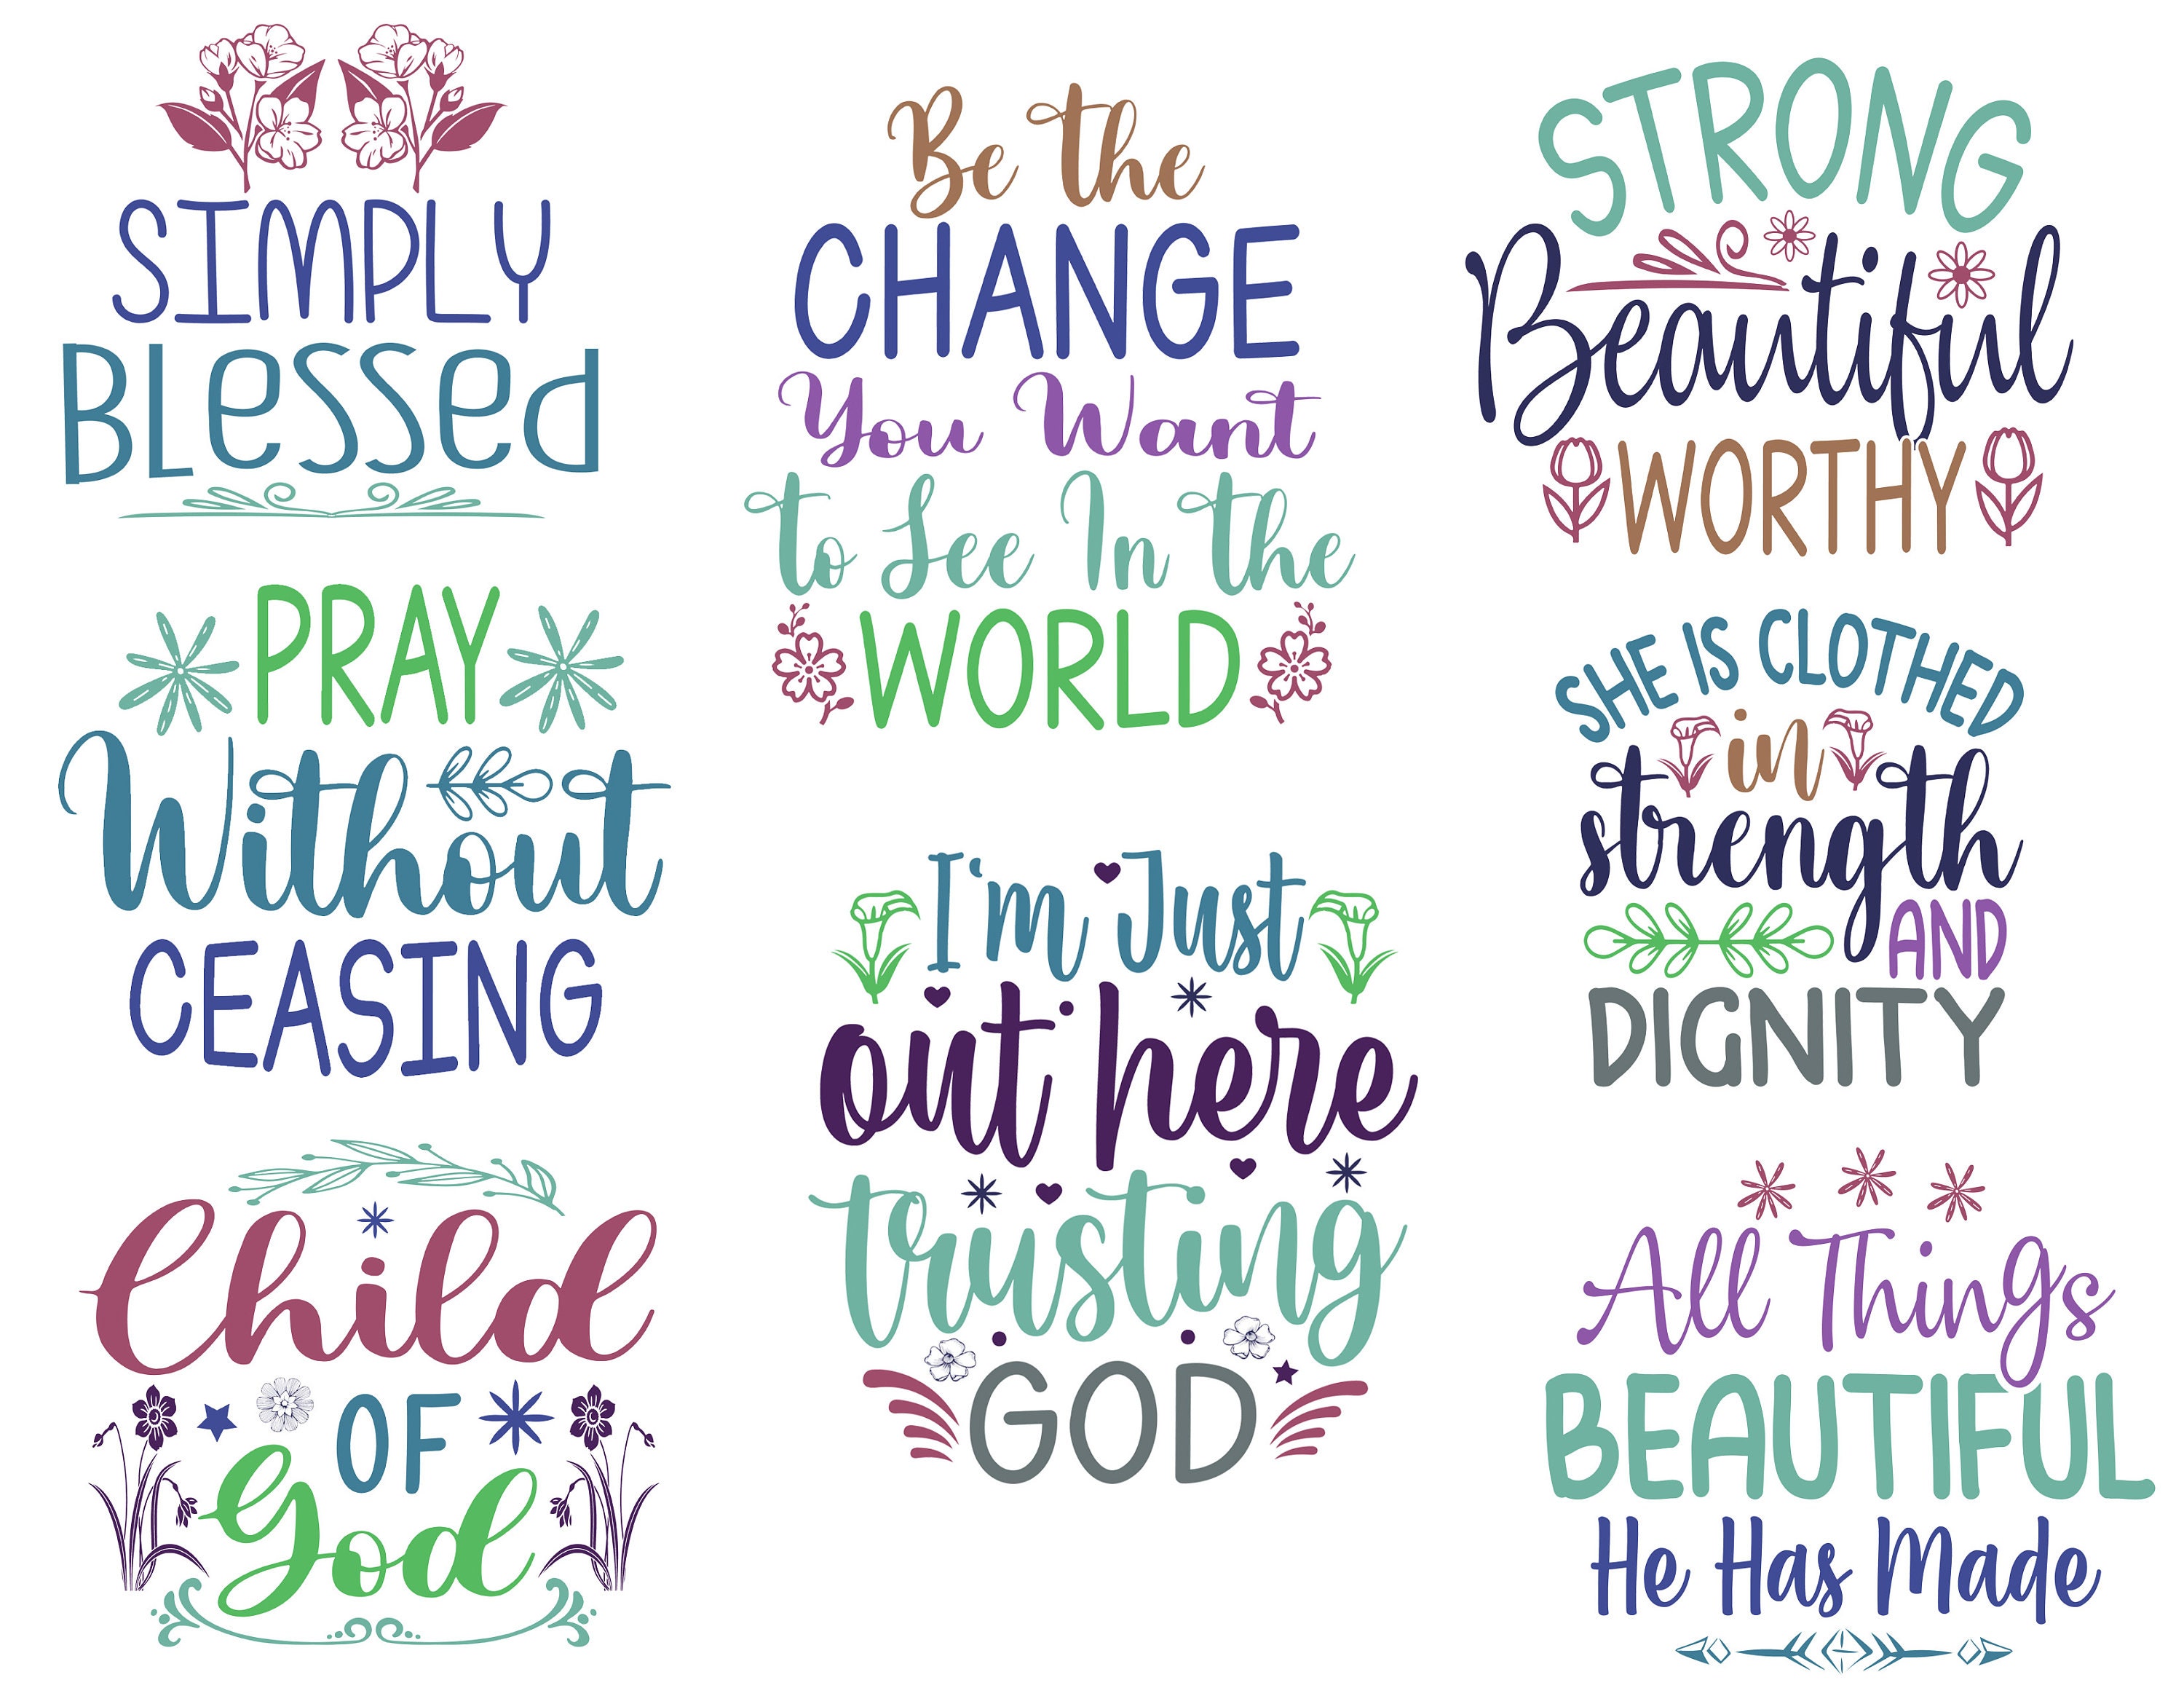 SIMPLY
BLessed
PRAY
Without
CEASING
Child
OF
God
Be the
CHANGE
You Want
to See In the
WORLD
I'm Just
out here
trusting
GOD
STRONG
Beautiful
WORTHY
SHE IS CLOTHED
in
strength
AND
DIGNITY
All Things
BEAUTIFUL
He Has Made